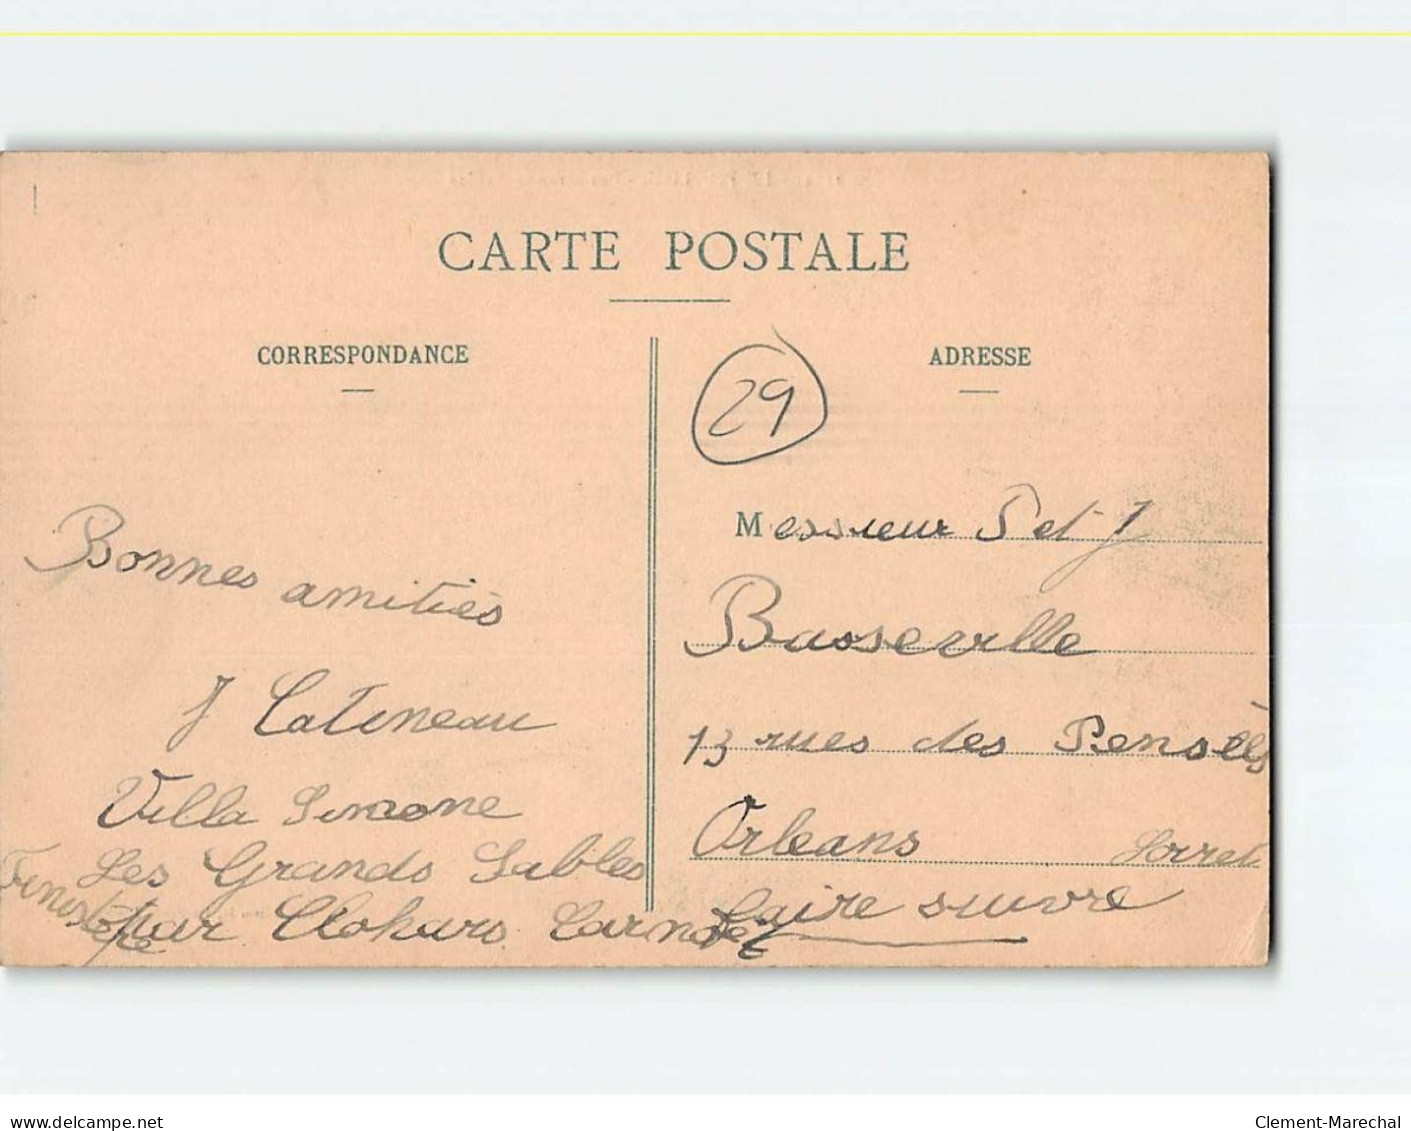 CARTE POSTALE
CORRESPONDANCE
ADRESSE
29
Bonnes amitiés
J Catineau
Villa Simone
Les Grands Sables
par Clohars Carnoet
Finistère
Messieur S et J
Basseville
13 rues des Pensèes
Orleans Loiret
Faire suivre
www.delcampe.net
Clement-Marechal